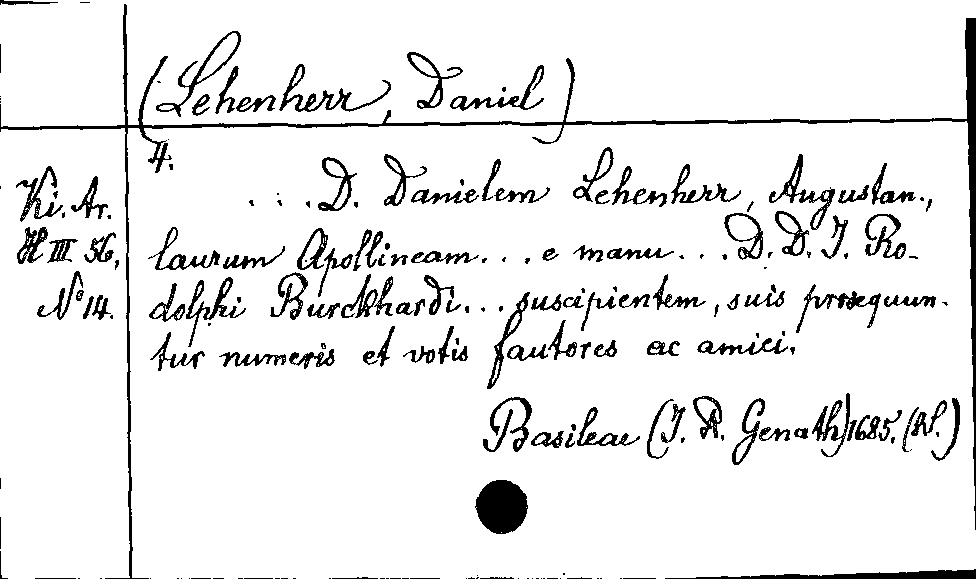 (Lehenherr, Daniel)
4.
Ki. Ar.
H III 56,
No 14.
. . . D. Danielem Lehenherr, Augustan.,
laurum Apollineam . . . e manu . . . D. D. J. Ro-
dolphi Burckhardi . . . suscipientem, suis prosequun-
tur numeris et votis fautores ac amici.
Basileae (J. R. Genath) 1685.